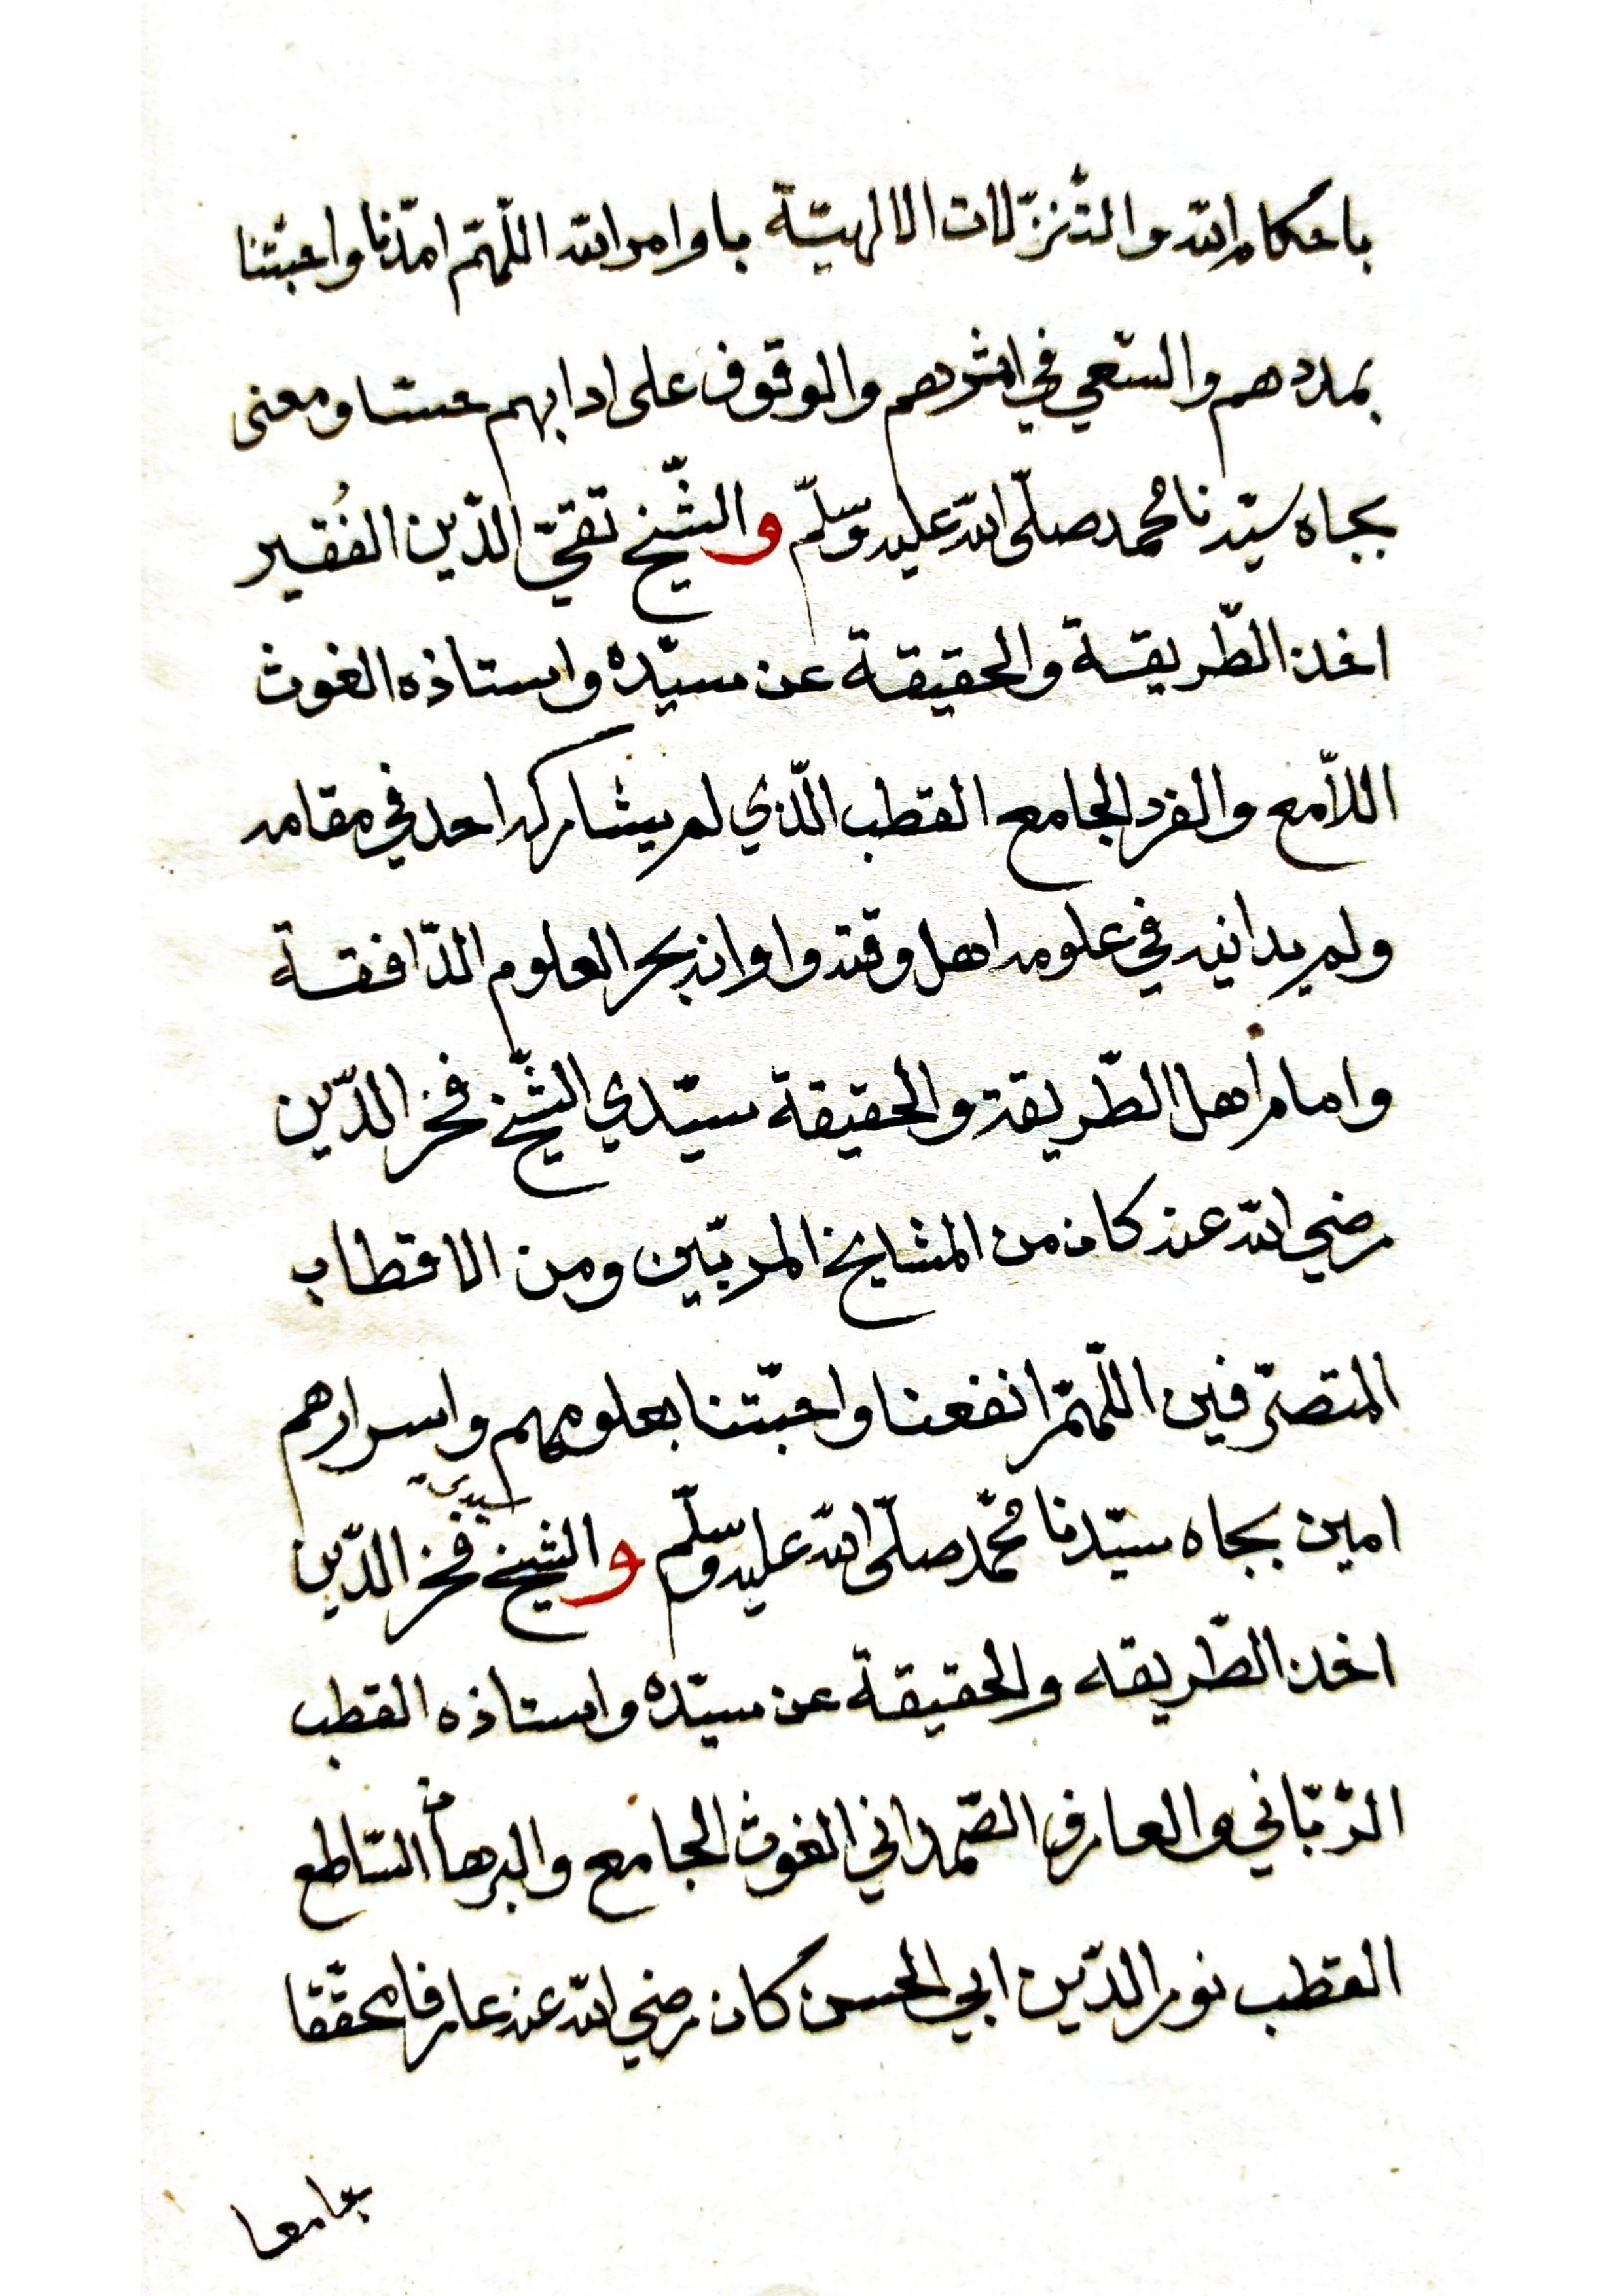 باحكام الله والتنزّلات الالهيّة باوامر الله اللّهمّ امدّنا واحبّتنا
بمددهم والسّعي في اثرهم والوقوف على ادابهم حسّا ومعنى
بجاه سيّدنا محمد صلّى الله عليه وسلّم والشّيخ تقيّ الدّين الفُقير
اخذ الطّريقة والحقيقة عن سيّده واستاذه الغوث
اللاّمع والفرد الجامع القطب الّذي لم يشاركه احد في مقامه
ولم يدانيه في علومه اهل وقته واوانه بحر العلوم الدّافقة
وامام اهل الطّريقة والحقيقة سيّدي الشّيخ فخر الدّين
رضي الله عنه كان من المشايخ المربّين ومن الاقطاب
المتصرّفين اللّهمّ انفعنا واحبّتنا بعلومهم واسرارهم
امين بجاه سيّدنا محمّد صلّى الله عليه وسلّم والشيخ سيدي فخر الدّين
اخذ الطّريقه والحقيقة عن سيّده واستاذه القطب
الرّبّاني والعارف الصّمداني الغوث الجامع والبرهان السّاطع
القطب نور الدّين ابي الحسن كان رضي الله عنه عارفا محقّقا
جامعا